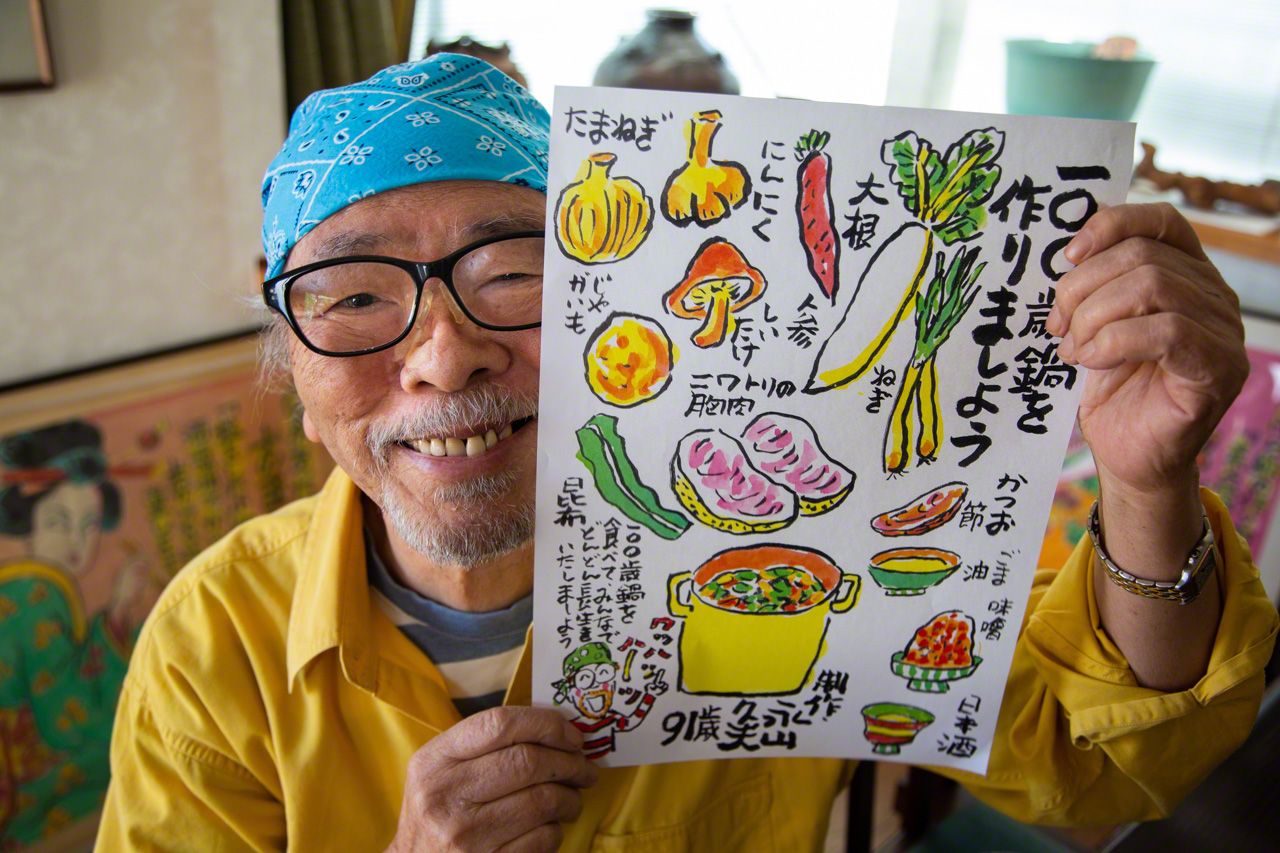 一〇〇歳鍋を
作りましょう
大根
ねぎ
人参
にんにく
たまねぎ
しいたけ
じゃ
がいも
ニワトリの
胸肉
昆布
かつお
節
ごま
油
味噌
日本酒
一〇〇歳鍋を
食べて、みんなで
どんどん長生き
いたしましょう
ワッハ
ハーッ
制作
91歳